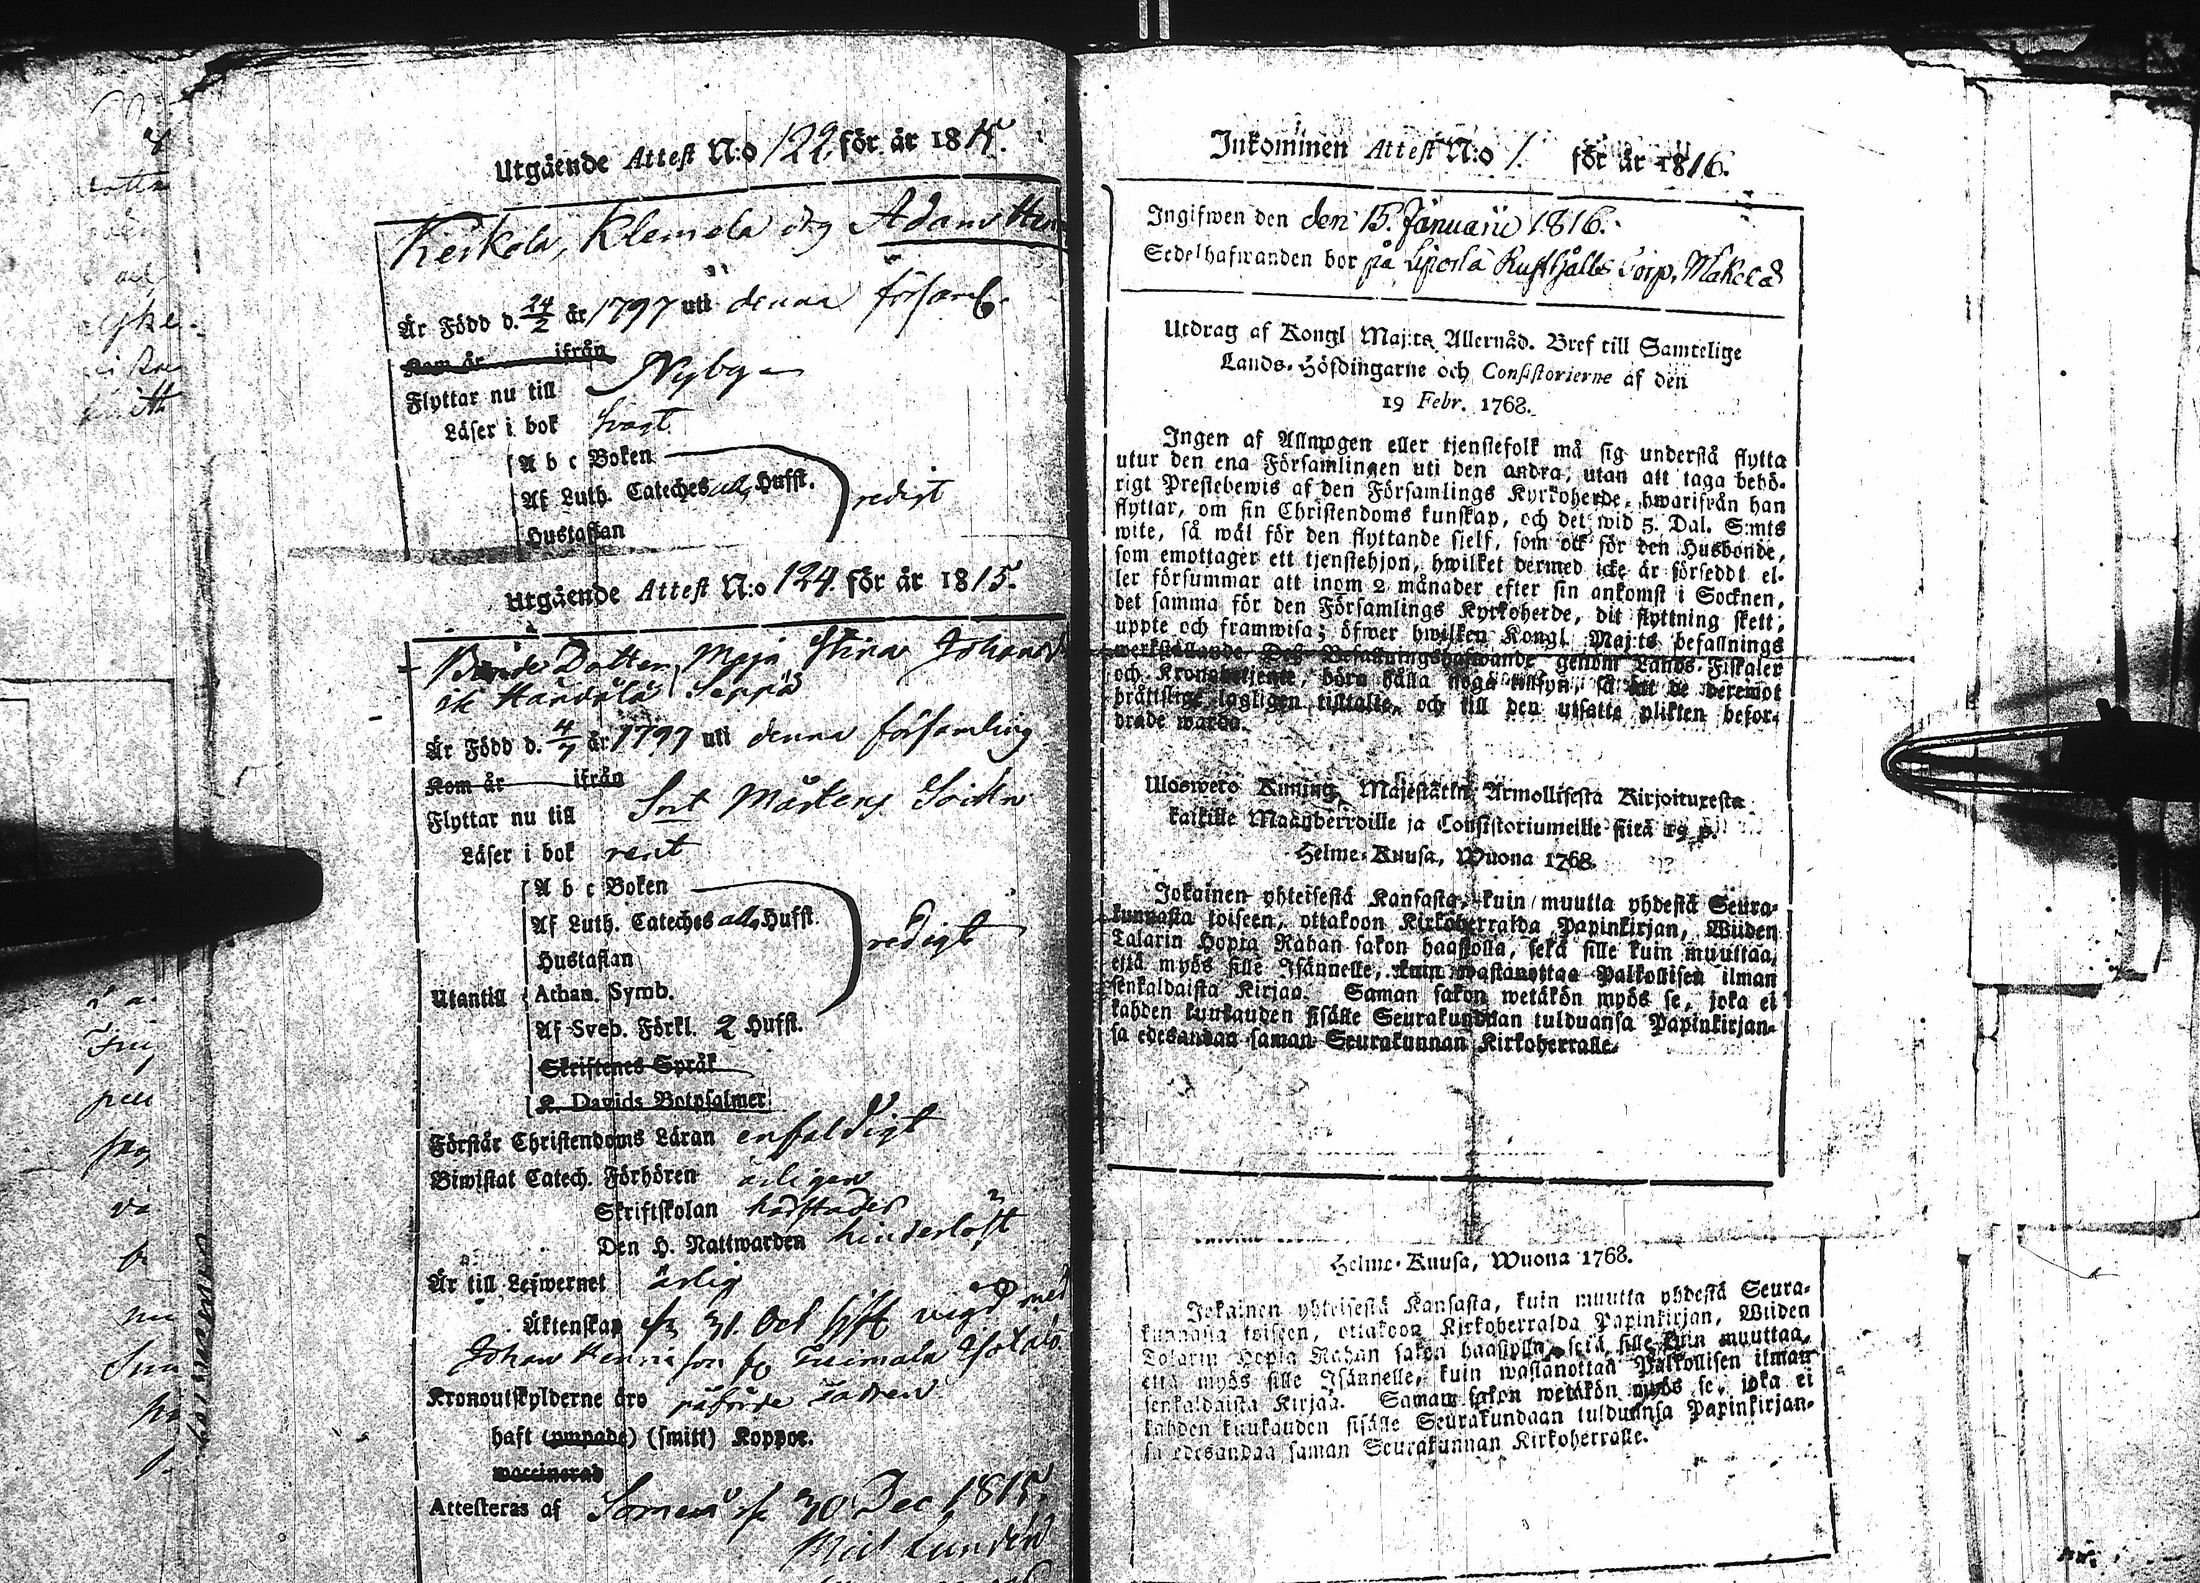 Utgående Attest N:o 122. för år 1815.
Keikola, Klemela Adam
Är Född d. 24/2 år 1797 uti denna församl.
Kom år ifrån
Flyttar nu till Nyby
Läser i bok svagt
A b c Boken
Af Luth. Cateches alla Hufst. redigt
Hustaflan
Utgående Attest N:o 124. för år 1815.
Bonde Dottern Maja Stina Johansd
Härdälä Seppä
Är Född d. 4/7 år 1797 uti denna församling
Kom år ifrån
Flyttar nu till Snt Mårtens Sockn
Läser i bok rent
A b c Boken
Af Luth. Cateches alla Hufst.
redigt
Hustaflan
Utantill Athan. Symb.
Af Sveb. Förkl. 2 Hufst.
Skriftenes Språk
K. Davids Botpsalmer
Förstår Christendoms Läran enfaldigt
Biwistat Catech. Förhören årligen
Skriftskolan
Den H. Nattwarden hinderlöst
Är till Lefwernet ärlig
Äktenskap 31. Oct vigd med
Johan
Kronoutskylderne äro påförde Fadren
haft (ympade) (smitt) Koppor.
waccinerad
Attesteras af Somero 30 Dec 1815.
Lunden
Inkommen Attest N:o 1. för år 1816.
Ingifwen den den 15. Januarii 1816.
Sedelhafwanden bor på Rusthålls Torp,
Utdrag af Kongl Maj:ts Allernåd. Bref till Samtelige
Lands-Höfdingarne och Consistorierne af den
19 Febr. 1768.
Ingen af Allmogen eller tjenstefolk må sig understå flytta
utur den ena Församlingen uti den andra, utan att taga behö-
rigt Prestebewis af den Församlings Kyrkoherde, hwarifrån han
flyttar, om sin Christendoms kunskap, och det wid 5. Dal. S:mts
wite, så wäl för den flyttande sjelf, som ock för den Husbonde,
som emottager ett tjenstehjon, hwilket dermed icke är försedd el-
ler försummar att inom 2 månader efter sin ankomst i Socknen,
det samma för den Församlings Kyrkoherde, dit flyttning skett,
uppte och framwisa; öfwer hwilken Kongl. Maj:ts befallnings
werkställande Dess Befallningshafwande genom Lands-Fiskaler
och Kronobetjente, böra hålla noga tillsyn, så att de deremot
bråttslige lagligen tilltalte, och till den utsatta plikten befor-
drade warda.
Uloswero Kuning. Majestätin Armollisesta Kirjoituxesta
kaikille Maanherroille ja Consistoriumeille siitä 19 p.
Helme-Kuusa, Wuona 1768.
Jokainen yhteisestä Kansasta, kuin muutta yhdestä Seura-
kunnasta toiseen, ottakoon Kirkoherralda Papinkirjan, Wiiden
Talarin Hopia Rahan sakon haastolla, sekä sille kuin muuttaa,
että myös sille Isännelle, kuin wastanottaa Palkollisen ilman
senkaldaista Kirjaa. Saman sakon wetäkön myös se, joka ei
kahden kuukauden sisälle Seurakundaan tulduansa Papinkirjan-
sa edesandaa saman Seurakunnan Kirkoherralle.
Helme-Kuusa, Wuona 1768.
Jokainen yhteisestä Kansasta, kuin muutta yhdestä Seura-
kunnasta toiseen, ottakoon Kirkoherralda Papinkirjan, Wiiden
Talarin Hopia Rahan sakon haastolla, sekä sille kuin muuttaa,
että myös sille Isännelle, kuin wastanottaa Palkollisen ilman
senkaldaista Kirjaa. Saman sakon wetäkön myös se, joka ei
kahden kuukauden sisälle Seurakundaan tulduansa Papinkirjan-
sa edesandaa saman Seurakunnan Kirkoherralle.